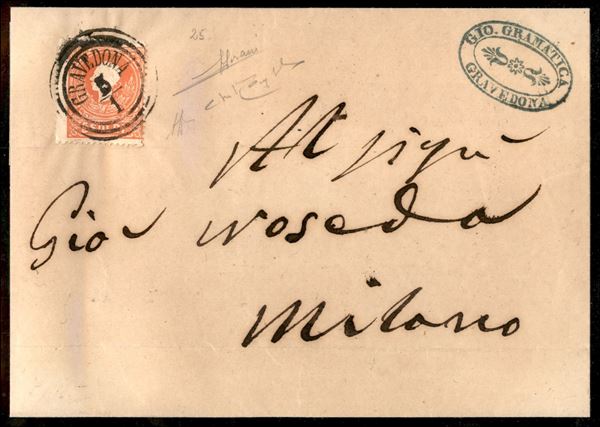 GRAVEDONA
5
1
25
GIO. GRAMATICA
GRAVEDONA
Al sigr
Gio Noseda
Milano